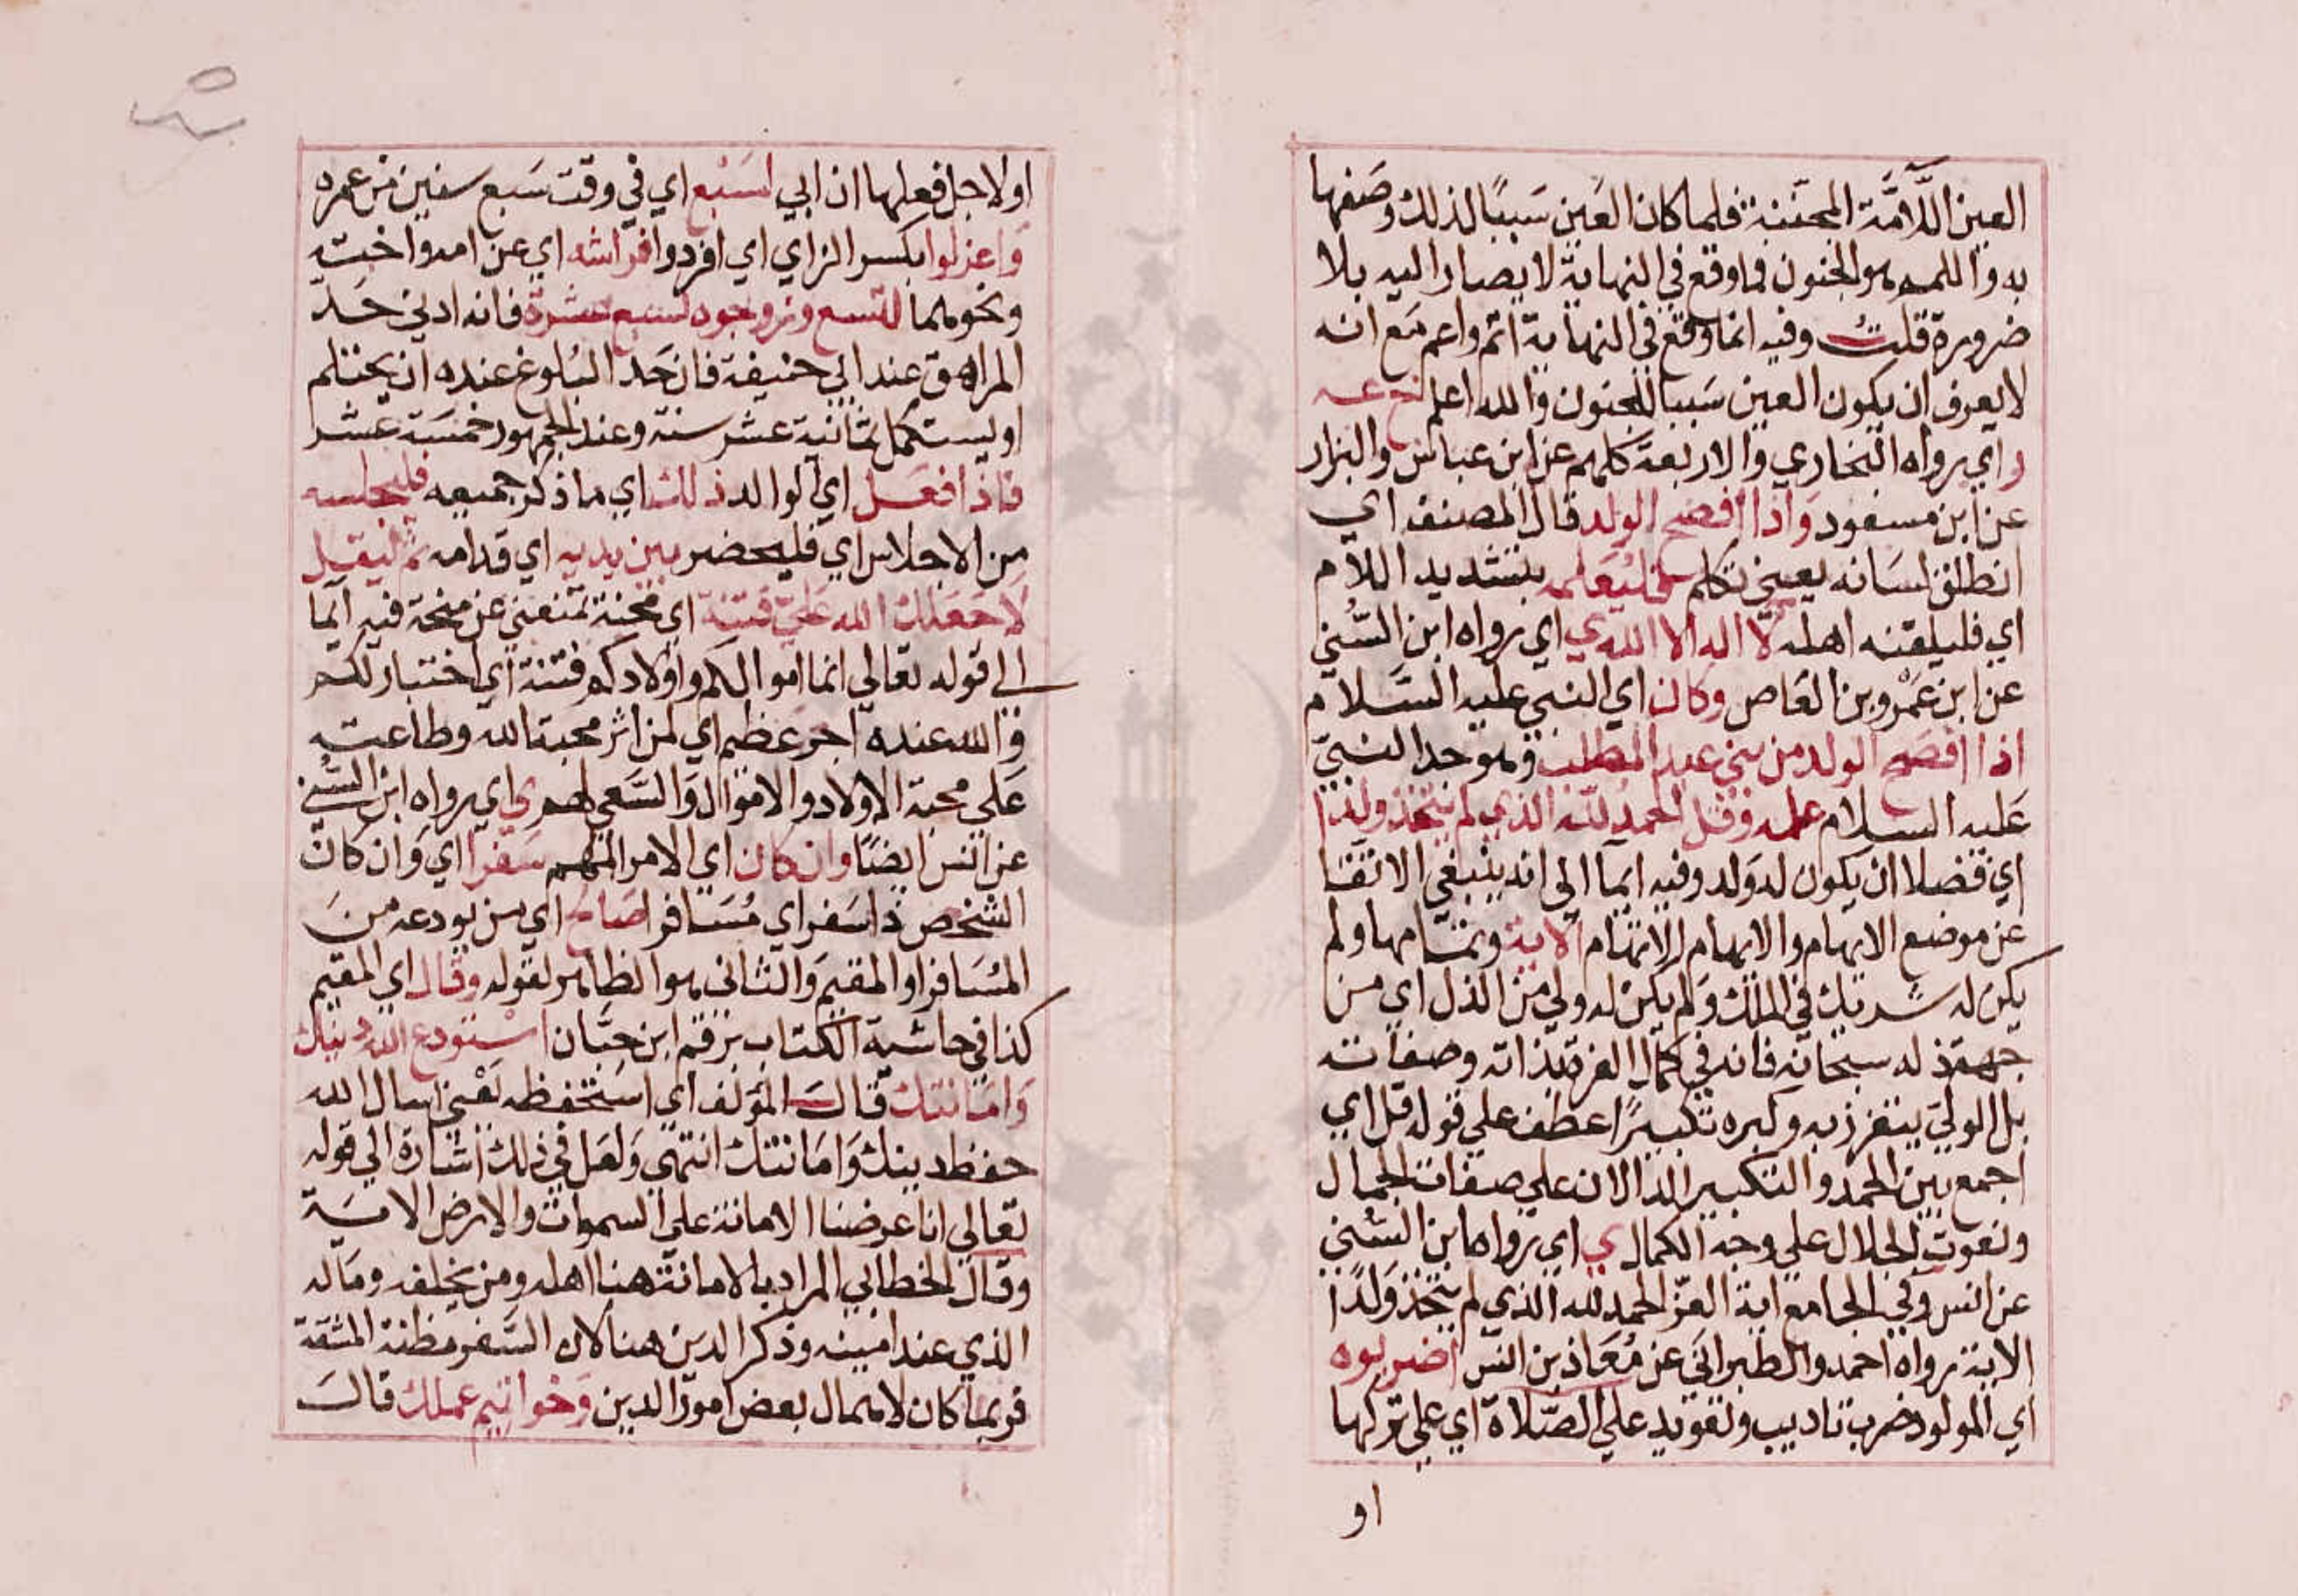 العين اللامة المجننة فلما كان العين سببا لذلك وصفها
به واللمم هو الجنون فما وقع في النهاية لا يصار اليه بلا
ضرورة قلت وفيه انما وقع في النهاية اتم واعم مع انه
لا يعرف ان يكون العين سببا للجنون والله اعلم خ عه
ر اي رواه البخاري والاربعة كلهم عن ابن عباس والبزار
عن ابن مسعود واذا افصح الولد قال المصنف اي
انطلق لسانه يعني تكلم فليعلمه بتشديد اللام
اي فليلقنه اهله لا اله الا الله ي اي رواه ابن السني
عن ابن عمرو بن العاص وكان اي النبي عليه السلام
اذا افصح الولد من بني عبد المطلب وهو جد النبي
عليه السلام علمه وقل الحمد لله الذي لم يتخذ ولدا
اي فضلا ان يكون له ولد وفيه ايما الى انه ينبغي الاتقا
عن موضع الايهام والابهام الاتهام الاية وتمامها ولم
يكن له شريك في الملك ولم يكن له ولي من الذل اي من
جهة ذله سبحانه فانه في كمال العزة بذاته وصفاته
بل الولي يتعزز به وكبره تكبيرا عطف علي قوله قل اي
اجمع بين الحمد والتكبير الدالان علي صفات الجمال
ونعوت الجلال علي وجه الكمال ي اي رواه ابن السني
عن انس وفي الجامع اية العز الحمد لله الذي لم يتخذ ولدا
الاية رواه احمد والطبراني عن معاذ بن انس اضربوه
اي المولود ضرب تاديب وتعويد علي الصلاة اي علي تركها
او
او لاجل فعلها ان ابي لسبع اي في وقت سبع سنين من عمره
واعزلوا بكسر الزاي اي افردوا فراشه اي عن امه واخته
ونحوهما لتسع وزوجوه لسبع عشرة فانه ادني حد
المراهق عند ابي حنيفة فان حد البلوغ عنده ان يحتلم
او يستكمل ثمانية عشر سنة وعند الجمهور خمسة عشر
فاذا فعل اي الوالد ذلك اي ما ذكر جميعه فليجلسه
من الاجلاس اي فليحضر بين يديه اي قدامه ثم ليقل
لا جعلك الله علي فتنة اي محنة تمنعني عن منحة فيه ايما
الي قوله تعالي انما اموالكم واولادكم فتنة اي اختبار لكم
والله عنده اجر عظيم اي لمن اثر محبة الله وطاعته
علي محبة الاولاد والاموال والسعي لهم ي اي رواه ابن السني
عن انس ايضا وان كان اي الامر المهم سفرا اي وان كان
الشخص ذا سفر اي مسافرا صافح اي من يودعه من
المسافر او المقيم والثاني هو الظاهر لقوله وقال اي المقيم
كذا في حاشية الكتاب برقم ابن حبان استودع الله دينك
وامانتك قال المؤلف اي استحفظه يعني اسال الله
حفظ دينك وامانتك انتهي ولعل في ذلك اشارة الي قوله
تعالي انا عرضنا الامانة علي السموات والارض الاية
وقال الخطابي المراد بالامانة هنا اهله ومن يخلفه وماله
الذي عند امينه وذكر الدين هنا لان السفر مظنة المشقة
فربما كان لاهمال بعض امور الدين وخواتيم عملك قال